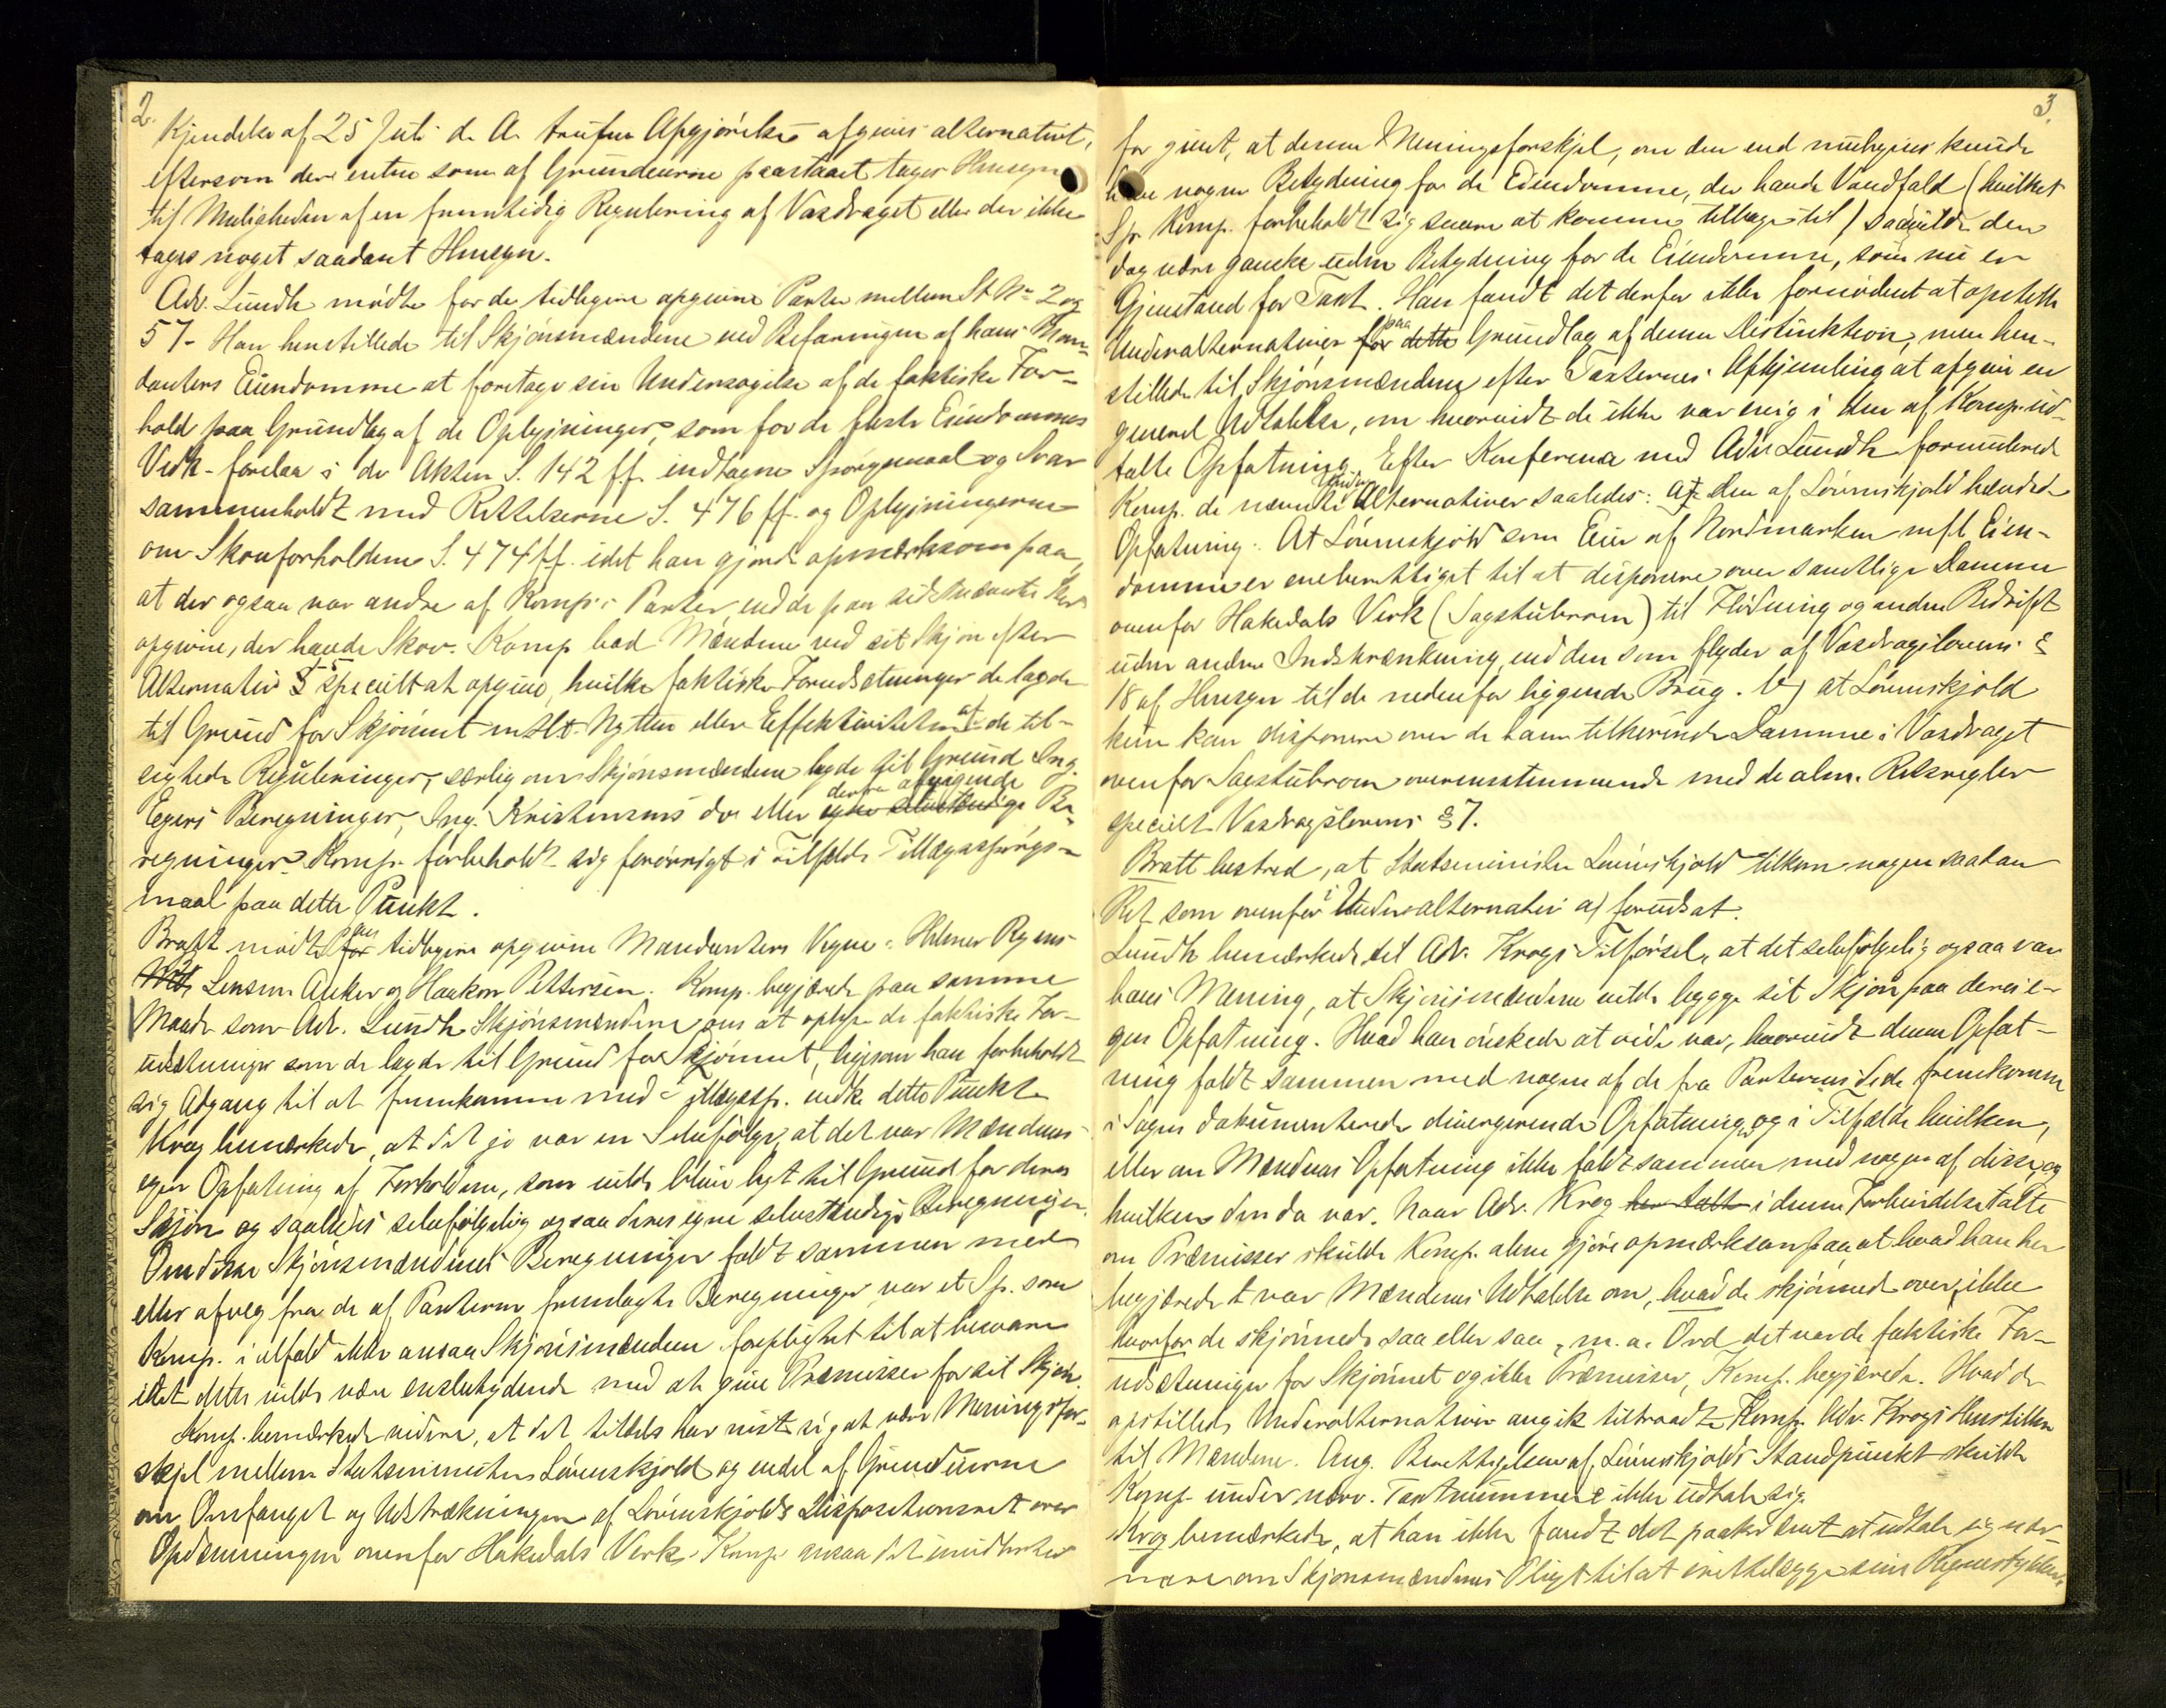 2.
Kjendelse af 25 Juli d. A. trufne Afgjørelse afgives alternativt,
eftersom der enten som af Grundeierne paastaaet tages Hensyn
til Muligheden af en fremtidig Regulering af Vasdraget eller der ikke
tages noget saadant Hensyn.
Adv. Lundh mødte for de tidligere opgivne Parter mellem St. No 2 og
57 - Han henstillede til Skjønsmændene ved Befaringen af hans Man-
danters Eiendomme at foretage sin Undersøgelse af de faktiske For-
hold paa Grundlag af de Oplysninger, som for de fleste Eiendommes
Vedk. forelaa i de Akten S. 142 ff. indtagne Spørgsmaal og Svar
sammenholdt med Rettelserne S. 476 ff. og Oplysningerne
om Skovforholdene S. 474 ff. idet han gjorde opmærksom paa,
at der ogsaa var andre af Komp.s Parter end de paa sidstnævnte Sted
opgivne, der havde Skov. Komp. bad Mændene ved sit Skjøn efter
Alternativ 5 specielt at opgive, hvilke faktiske Forudsætninger de lagde
til Grund for Skjønnet m.H.t. Nytten eller Effektiviteten af de til-
sigtede Reguleringer, særlig om Skjønsmændene lagde til Grund Ing.
Egers Beregninger, Ing. Kristensens do. eller egne selvstændige derfra afvigende Be-
regninger. Komp. forbeholdt sig forøvrigt i Tilfælde Tillægsspørgs-
maal paa dette Punkt.
Bratt mødte for paa tidligere opgivne Mandanters Vegne: Hilmer Ryens
Lensm. Anker og Haakon Pettersen. Komp. begjærede paa samme
Maade som Adv. Lundh Skjønsmændene om at oplyse de faktiske For-
udsætninger som de lagde til Grund for Skjønnet, ligesom han forbeholdt
sig Adgang til at fremkomme med Tillægssp. vedk. dette Punkt.
Krog bemærkede, at det jo var en Selvfølge, at det var Mændenes
egen Opfatning af Forholdene, som vilde blive lagt til Grund for deres
Skjøn og saaledes selvfølgelig ogsaa deres egne selvstændige Beregninger.
Om disse Skjønsmændenes Beregninger faldt sammen med
eller afveg fra de af Parterne fremlagte Beregninger var et Sp. som
Komp. i alfald ikke ansaa Skjønsmændene forpligtet til at besvare
idet dette vilde være ensbetydende med at give Præmisser for sit Skjøn.
Komp. bemærkede videre, at det tildels har vist sig at være Meningsfor-
skjel mellem Statsminister Løvenskjold og endel af Grundeierne
om Omfanget og Udstrækningen af Løvenskjolds Dispositionsret over
Opdæmningen ovenfor Hakedals Verk. Komp. ansaa det imidlertid
3.
for givet, at denne Meningsforskjel, om den end muligens kunde
have nogen Betydning for de Eiendomme, der havde Vandfald (hvilket
Sp. Komp. forbeholdt sig senere at komme tilbage til) saa vilde den
dog være ganske uden Betydning for de Eiendomme, som nu er
Gjenstand for Taxt. Han fandt det derfor ikke fornødent at opstille
Underalternativer for dette paa Grundlag af denne Distinktion, men hen-
stillede til Skjønsmændene efter Taxternes Afhjemling at afgive en
generel Udtalelse, om hvorvidt de ikke var enig i den af Komp. ud-
talte Opfatning. Efter Konferance med Adv. Lundh formulerede
Komp. de nævnte Underalternativer saaledes: a) den af Løvenskjold hævdede
Opfatning: At Løvenskjold som Eier af Nordmarken m.fl. Eien-
domme er eneberettiget til at disponere over samtlige Damme
ovenfor Hakedals Verk (Sagstubroen) til Flødning og anden Bedrift
uden anden Indskrænkning, end den som flyder af Vasdragslovens §
18 af Hensyn til de nedenfor liggende Brug. b) at Løvenskjold
kun kan disponere over de ham tilhørende Damme i Vasdraget
ovenfor Sagstubroen overensstemmende med de alm. Retsregler
specielt Vasdragslovens § 7.
Bratt bestred, at Statsminister Løvenskjold tilkom nogen saadan
Ret som ovenfor i Underalternativ a) forudsat.
Lundh bemærkede til Adv. Krogs Tilførsel, at det selvfølgelig ogsaa var
hans Mening, at Skjønsmændene vilde lægge sit Skjøn paa deres e-
gen Opfatning. Hvad han ønskede at vide var, hvorvidt denne Opfat-
ning faldt sammen med nogen af de fra Parternes Side fremkomne
i Sagen dokumenterede divergerende Opfatninger og i Tilfælde hvilken,
eller om Mændenes Opfatning ikke faldt sammen med nogen af disse, og
hvilken den da var. Naar Adv. Krog her talte i denne Forbindelse talte
om Præmisser skulde Komp. alene gjøre opmærksom paa at hvad han her
begjærede var Mændenes Udtalelse om, hvad de skjønnede over, ikke
hvorfor de skjønnede saa eller saa, m. a. Ord det var de faktiske For-
udsætninger for Skjønnet og ikke Præmisser, Komp. begjærede. Hvad de
opstillede Underalternativer angik tiltraadte Komp. Adv. Krogs Henstillen
til Mændene. Ang. Berettigelsen af Løvenskjolds Standpunkt skulde
Komp. under nærv. Taxtnummere ikke udtale sig.
Krog bemærkede, at han ikke fandt det paakrævet at udtale sig nær-
mere om Skjønsmændenes Pligt til at fremlægge sine Regnestykker,